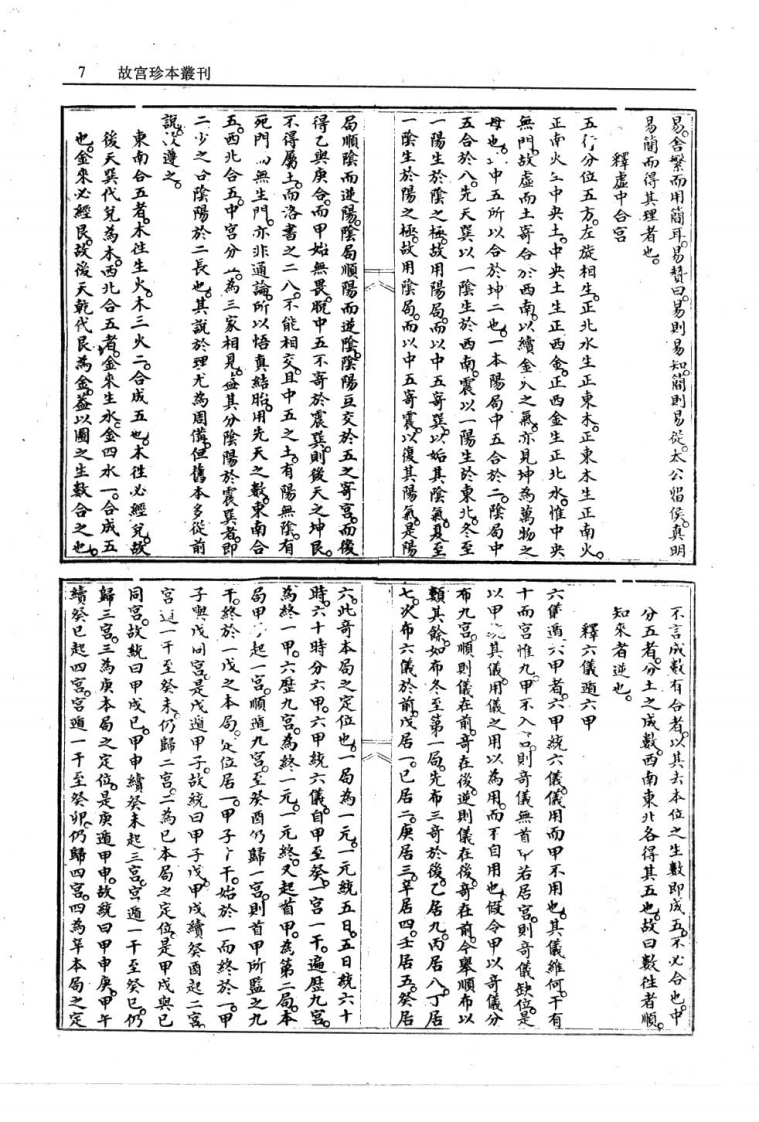 7 故宮珍本叢刊
易。舍繁而用簡耳。易贊曰。易則易知。簡則易從。太公留侯。真明
易簡而得其理者也。
釋虛中合宮
五行分位五方。左旋相生。正北水生正東木。正東木生正南火。
正南火生中央土。中央土生正西金。正西金生正北水。惟中央
無門。故虛而土寄合於西南。以續金火之氣。亦見坤為萬物之
母也。中五所以合於坤二也。一本陽局中五合於二。陰局中
五合於八。先天巽以一陰生於西南。震以一陽生於東北。冬至
一陽生於陰之極。故用陽局。而以中五寄巽。以姤其陰氣。夏至
一陰生於陽之極。故用陰局。而以中五寄震。以復其陽氣。是陽
局順陰而逆陽。陰局順陽而逆陰。陰陽互交於五之寄宮。而後
得乙與庚合。而甲始無畏。脫中五不寄於震巽。則後天之坤艮。
不得屬土。而洛書之二八。不能相交。且中五之土。有陽無陰。有
死門無生門。亦非通論。所以悟真結胎。用先天之數。東南合
五。西北合五。中宮分為三家相見。蓋其分陰陽於震巽者。即
二少之合陰陽於二長也。其說於理尤為周備。但舊本多從前
說。以遵之。
東南合五者。木往生火。木三火二。合成五也。木往必經兌。故
後天巽代兌為木。西北合五者。金來生水。金四水一。合成五
也。金來必經艮。故後天乾代艮為金。蓋以圖之生數合之也。
不言成數有合者。以其去本位之生數即成五。不必合也。中
分五者。分土之成數。西南東北各得其五也。故曰數往者順。
知來者逆也。
釋六儀遁六甲
六儀遁六甲者。六甲統六儀。儀用而甲不用也。其儀維何。干有
十而宮惟九。甲不入宮。則奇儀無首。甲若居宮。則奇儀缺位。是
以甲統其儀。用儀之用以為用。而不自用也。假令甲以奇儀分
布九宮。順則儀在前。奇在後。逆則儀在後。奇在前。今舉順布以
類其餘。如布冬至第一局。先布三奇於後。乙居九。丙居八。丁居
七。次布六儀於前。戊居一。己居二。庚居三。辛居四。壬居五。癸居
六。此奇本局之定位也。一局為一元。一元統五日。五日統六十
時。六十時分六甲。六甲統六儀。自甲至癸。一宮一干。遍歷九宮。
為終一甲。六歷九宮。為終一元。一元終。又起首甲。為第二局。本
局甲子起一宮。順遁九宮。至癸酉仍歸一宮。則首甲所監之九
干。終於一戊之本局。定位居一。甲子干。始於一而終於一。甲
子與戊同宮。是戊遁甲子。故統曰甲子戊。甲戌續癸酉起二宮。
宮遁一干至癸未。仍歸二宮。二為己本局之定位。是甲戌與己
同宮。故統曰甲戌己。甲申續癸未起三宮。宮遁一干至癸巳。仍
歸三宮。三為庚本局之定位。是庚遁甲申。故統曰甲申庚。甲午
續癸巳起四宮。宮遁一干至癸卯。仍歸四宮。四為辛本局之定